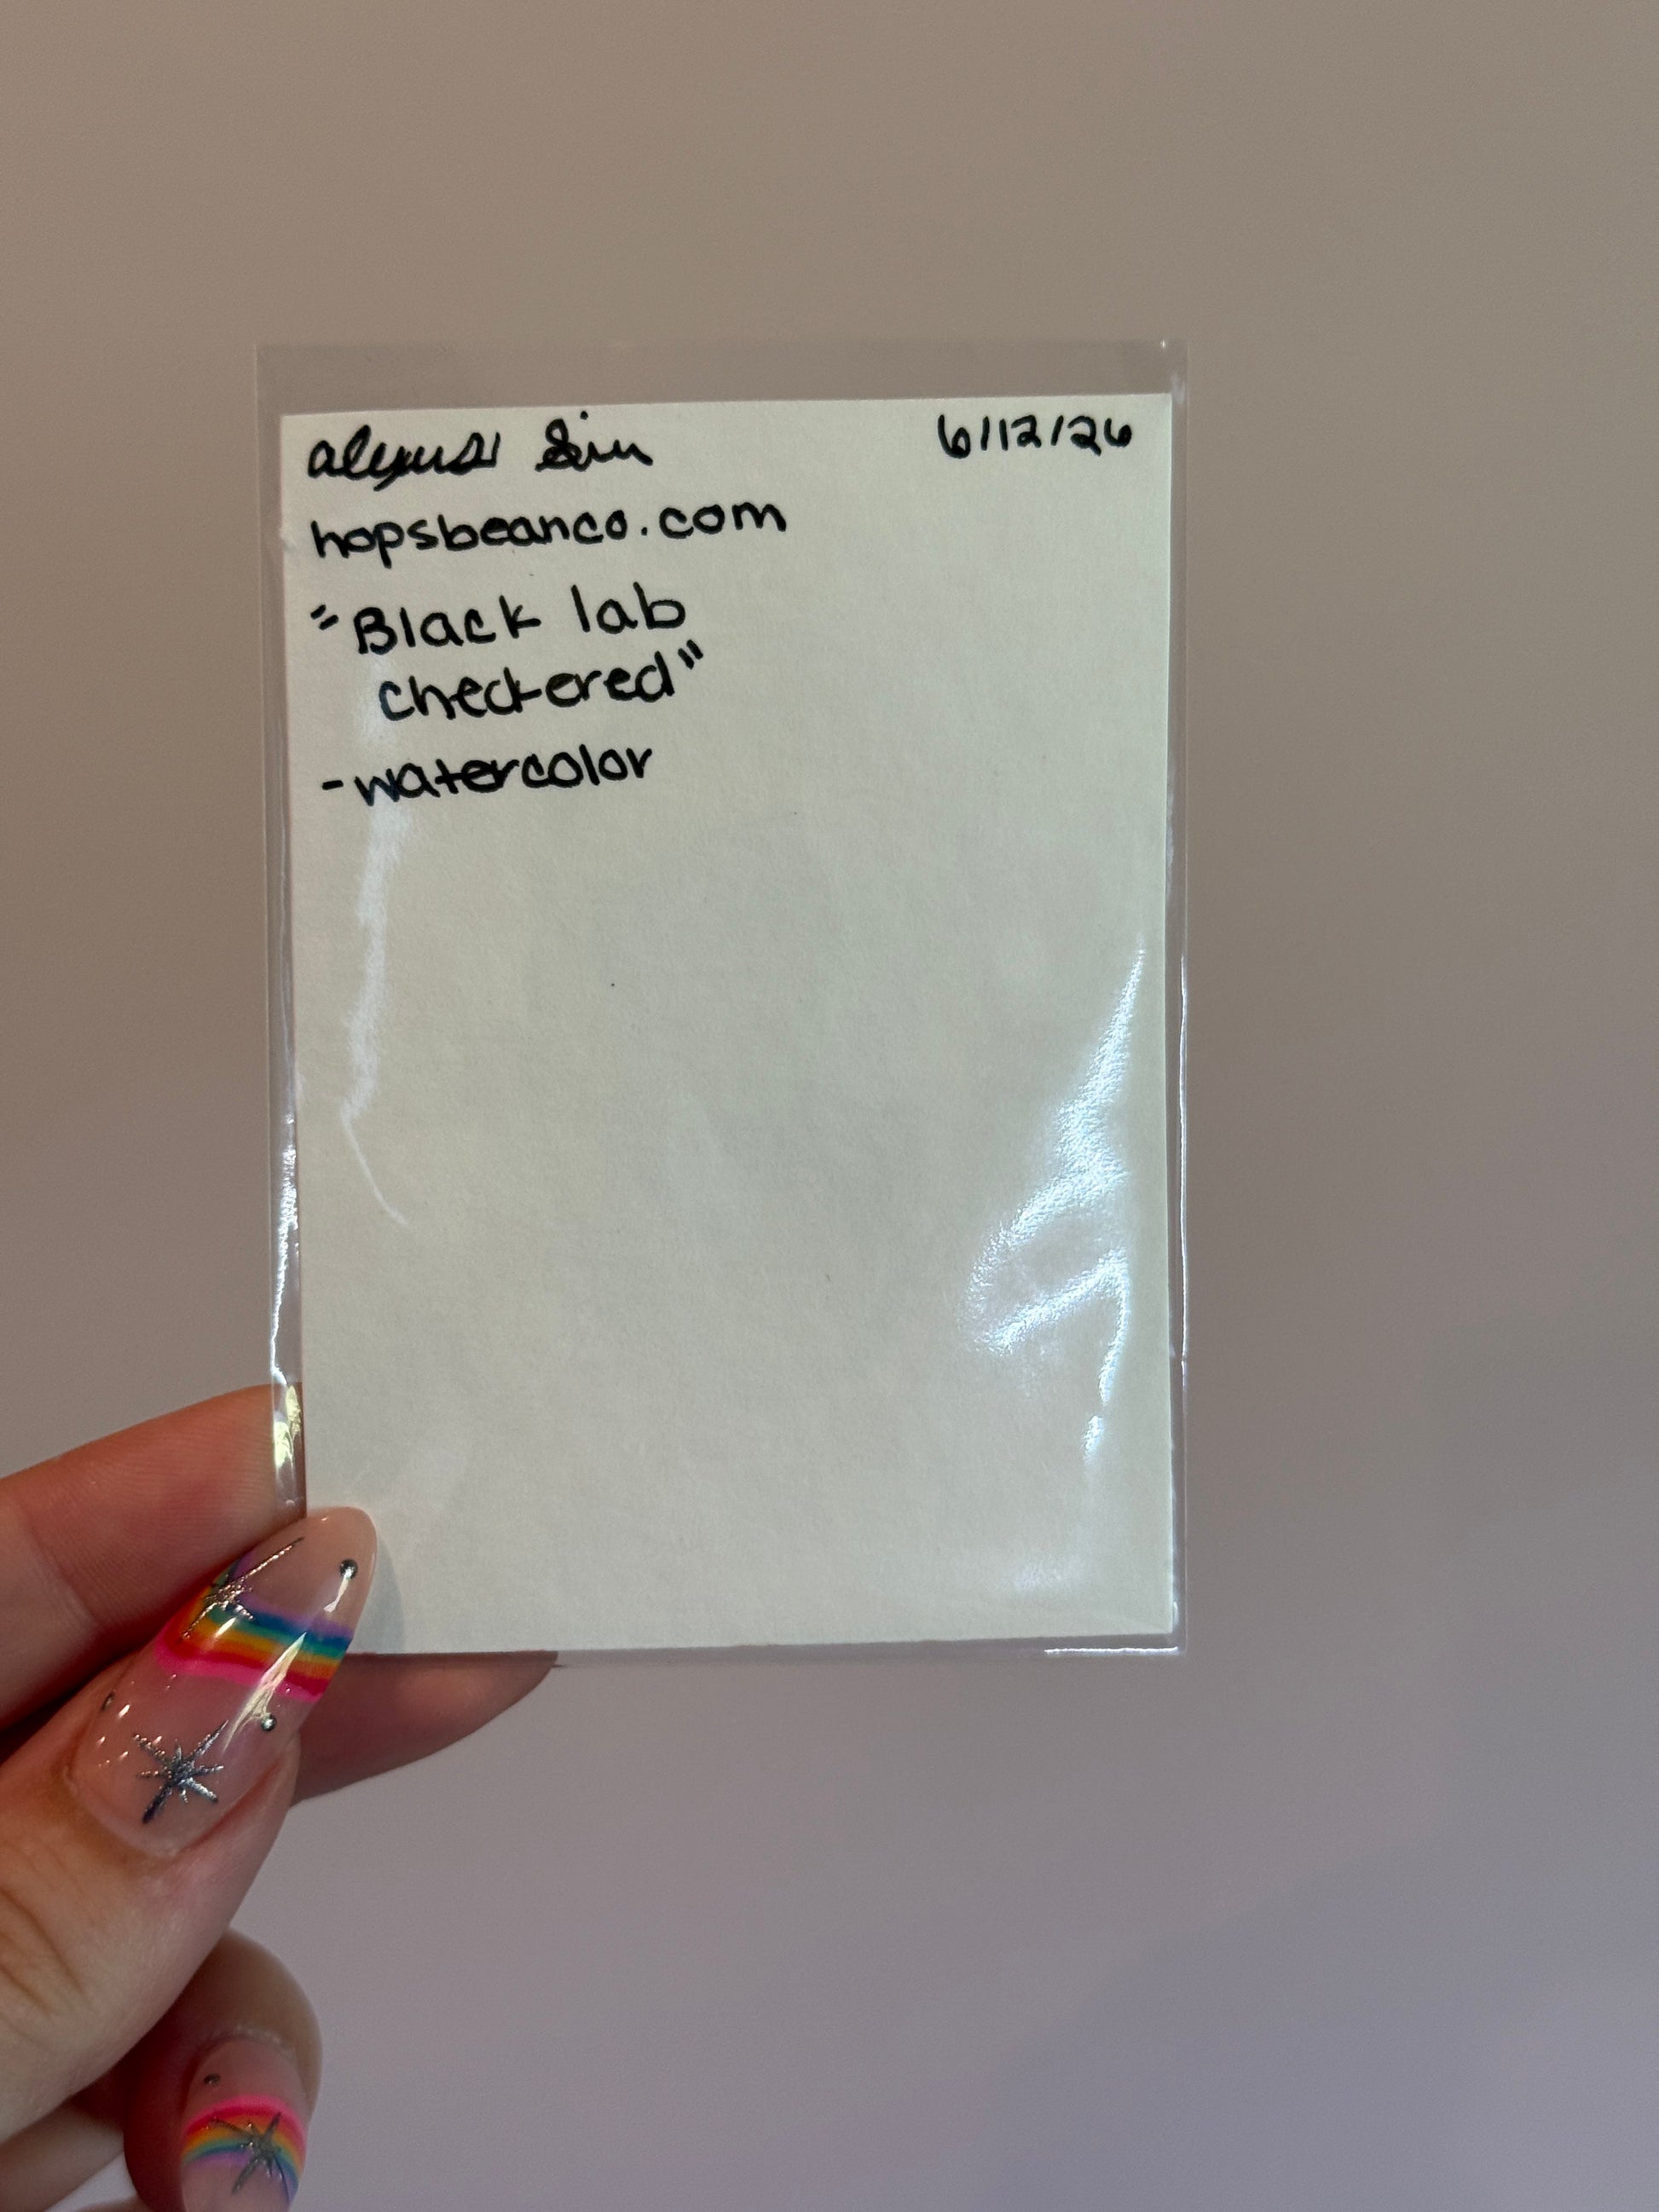 6/12/26
hopsbeanco.com
"Black lab
checkered"
-watercolor